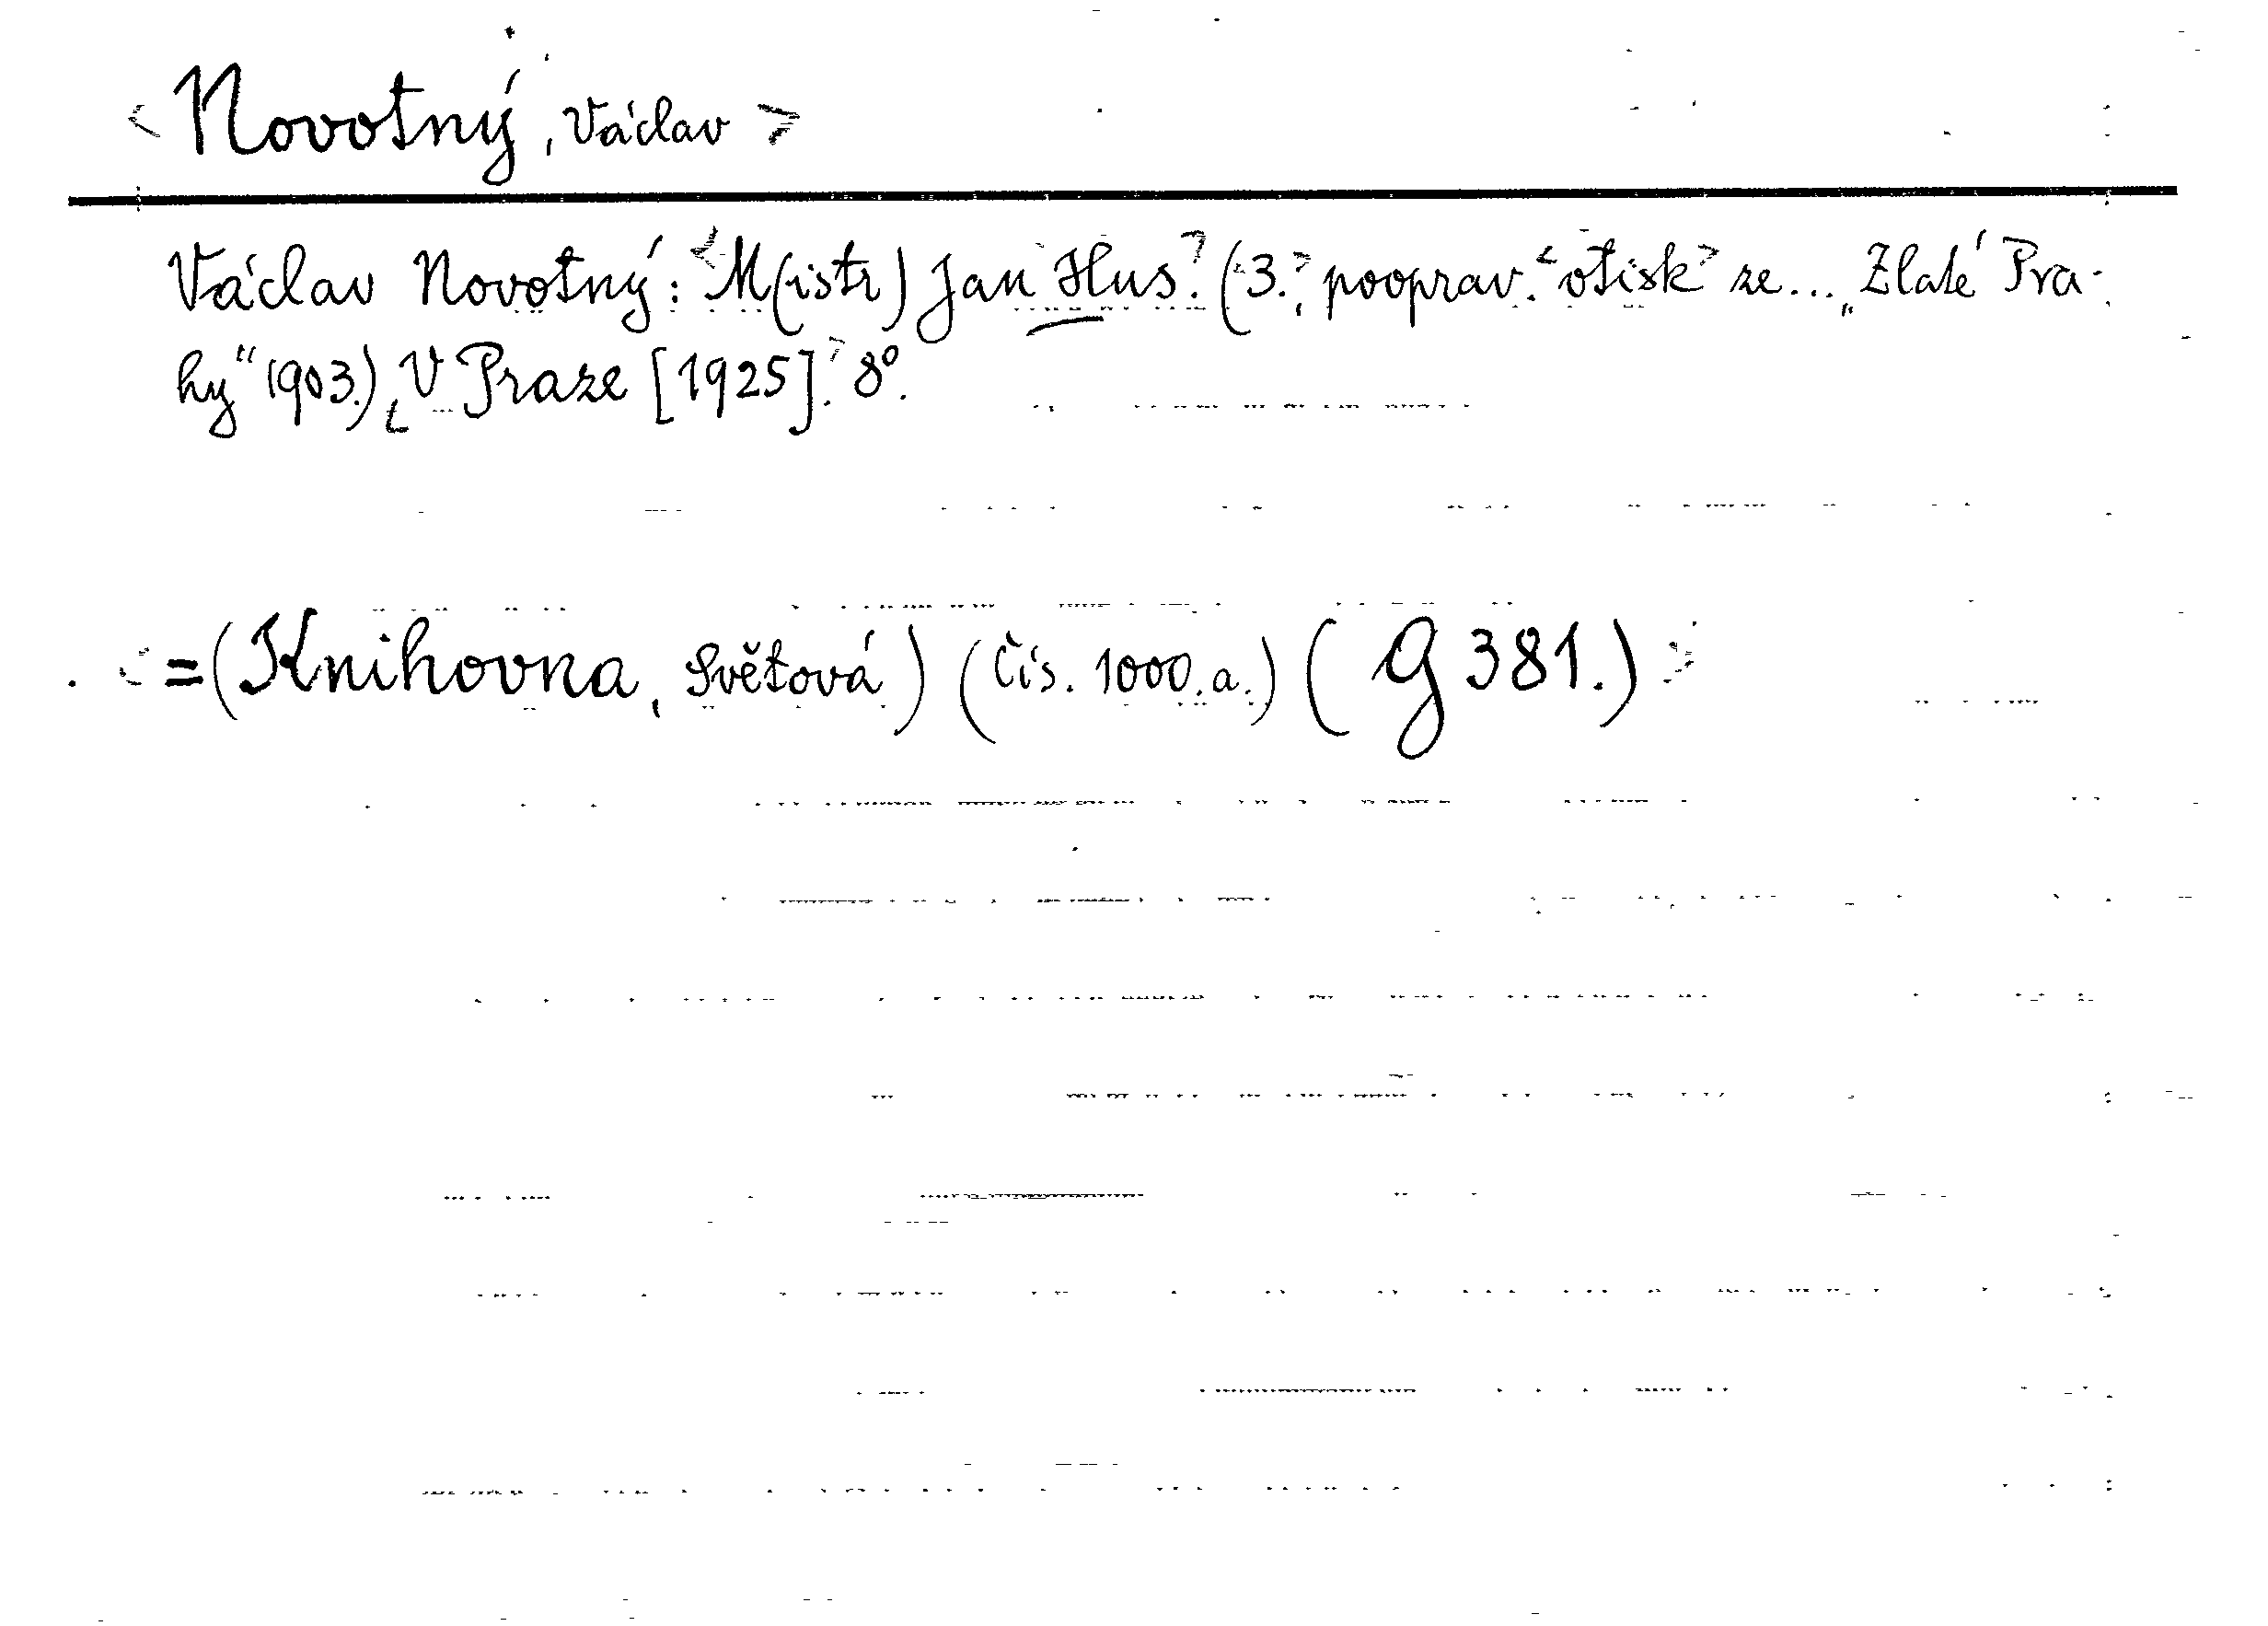 <Novotný, Václav>
Václav Novotný: <M(istr) Jan Hus.> (<3.>, pooprav. <otisk> ze... „Zlaté Pra-
hy“ 1903.) <V Praze [1925].> 8°.
<=(Knihovna, Světová) (Čís. 1000.a.) (G 381.)>